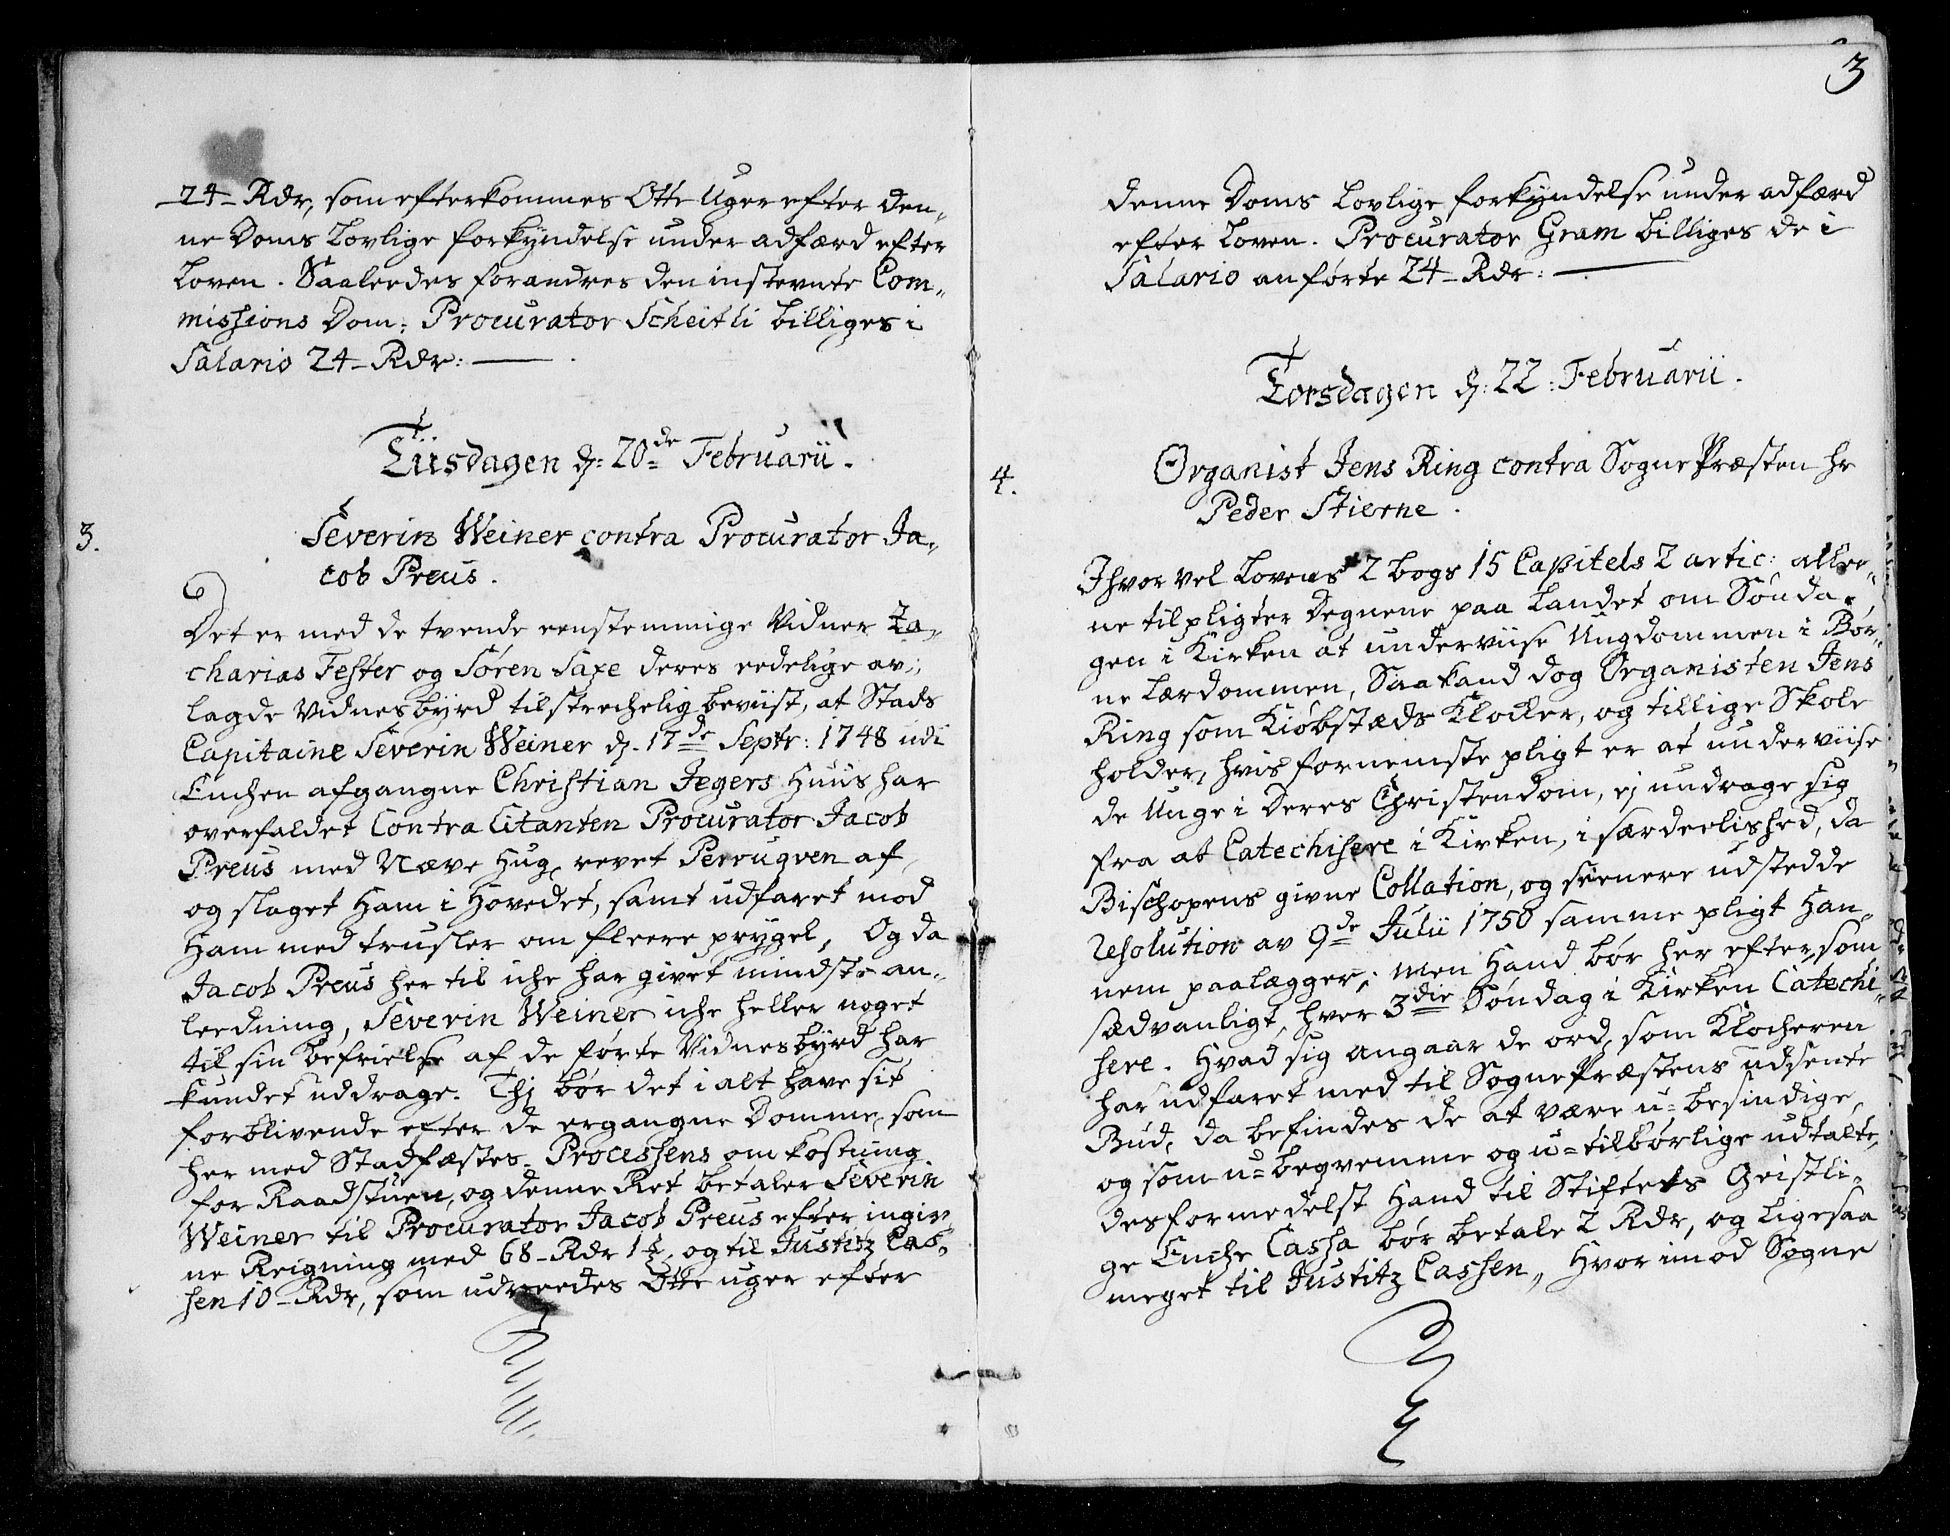 24 - Rdr, som efterkommes Otte Uger efter den„
ne Doms Lovlige forkyndelse under adfærd efter
Loven. Saaleedes forandres den instevnte Com„
missions Dom: Procurator Scheitli billiges i
Salario 24 - Rdr:
Tiisdagen d: 20de Februarii.
3.
Severin Weiner contra Procurator Ja„
cob Preus.
Det er med de tvende eenstemmige Vidner Za„
charias Fester og Søren Saxe deres eedelige av„
lagde Vidnesbyrd tilstrechelig beviist, at Stads
Capitaine Severin Weiner d. 17de Septr: 1748 udi
Enchen afgangne Christian Jegers Huus har
overfaldet Contra Citanten Procurator Jacob
Preus med Næve Hug, revet Perruqven af,
og slaget Ham i Hovedet, samt udfaret mod
Ham med trusler om fleere prygel, Og da
Jacob Preus her til iche har givet mindste an„
leedning, Severin Weiner iche heller noget
til sin befrielse af de førte Vidnesbyrd har
kundet uddrage. Thj bør det i alt have sit
forblivende efter de ergangne Domme, som
her med Stadfæstes. Processens omkostning
for Raadstuen, og denne Ret betaler Severin
Weiner til Procurator Jacob Preus efter ingiv„
ne Reigning med 68 - Rdr 1 ½, og til Justitz Cas„
sen 10 - Rdr, som udreedes Otte uger efter
3
denne Doms Lovlige forkyndelse under adfærd
efter Loven. Procurator Gram billiges de i
Salario anførte 24 - Rdr:
Torsdagen d: 22: Februarii.
4.
Organist Jens Ring contra SognePræsten hr
Peder Stierne.
Ihvorvel Lovens 2 bogs 15 Capitels 2 artic: allee„
ne tilpligter Degnene paa Landet om Sønda„
gen i Kirken at underviise Ungdommen i Bør„
ne Lærdommen, Saa kand dog Organisten Jens
Ring som Kiøbstæds Klocker, og tillige Skole
holder, hvis fornemste pligt er at underviise
de Unge i Deres Christendom, ej undrage sig
fra at Catechisere i Kirken, i særdeelished, da
Bischopens givne Collation, og seenere udstedde
Resolution av 9de Julii 1750 samme pligt Han„
nem paalægger; Men Hand bør her efter, som
sædvanligt, hver 3die Søndag i Kirken Catechi„
sere. Hvad sig angaar de ord, som Klocheren
har udfaret med til SognePræstens udsente
Bud, da befindes de at være u=besindige,
og som u=beqvemme og u=tilbørlige udtalte,
desformedelst Hand til Stiftets Geistli„
ge Enche Cassa bør betale 2 Rdr, og ligesaa
meget til Justitz Cassen, Hvorimod Sogne